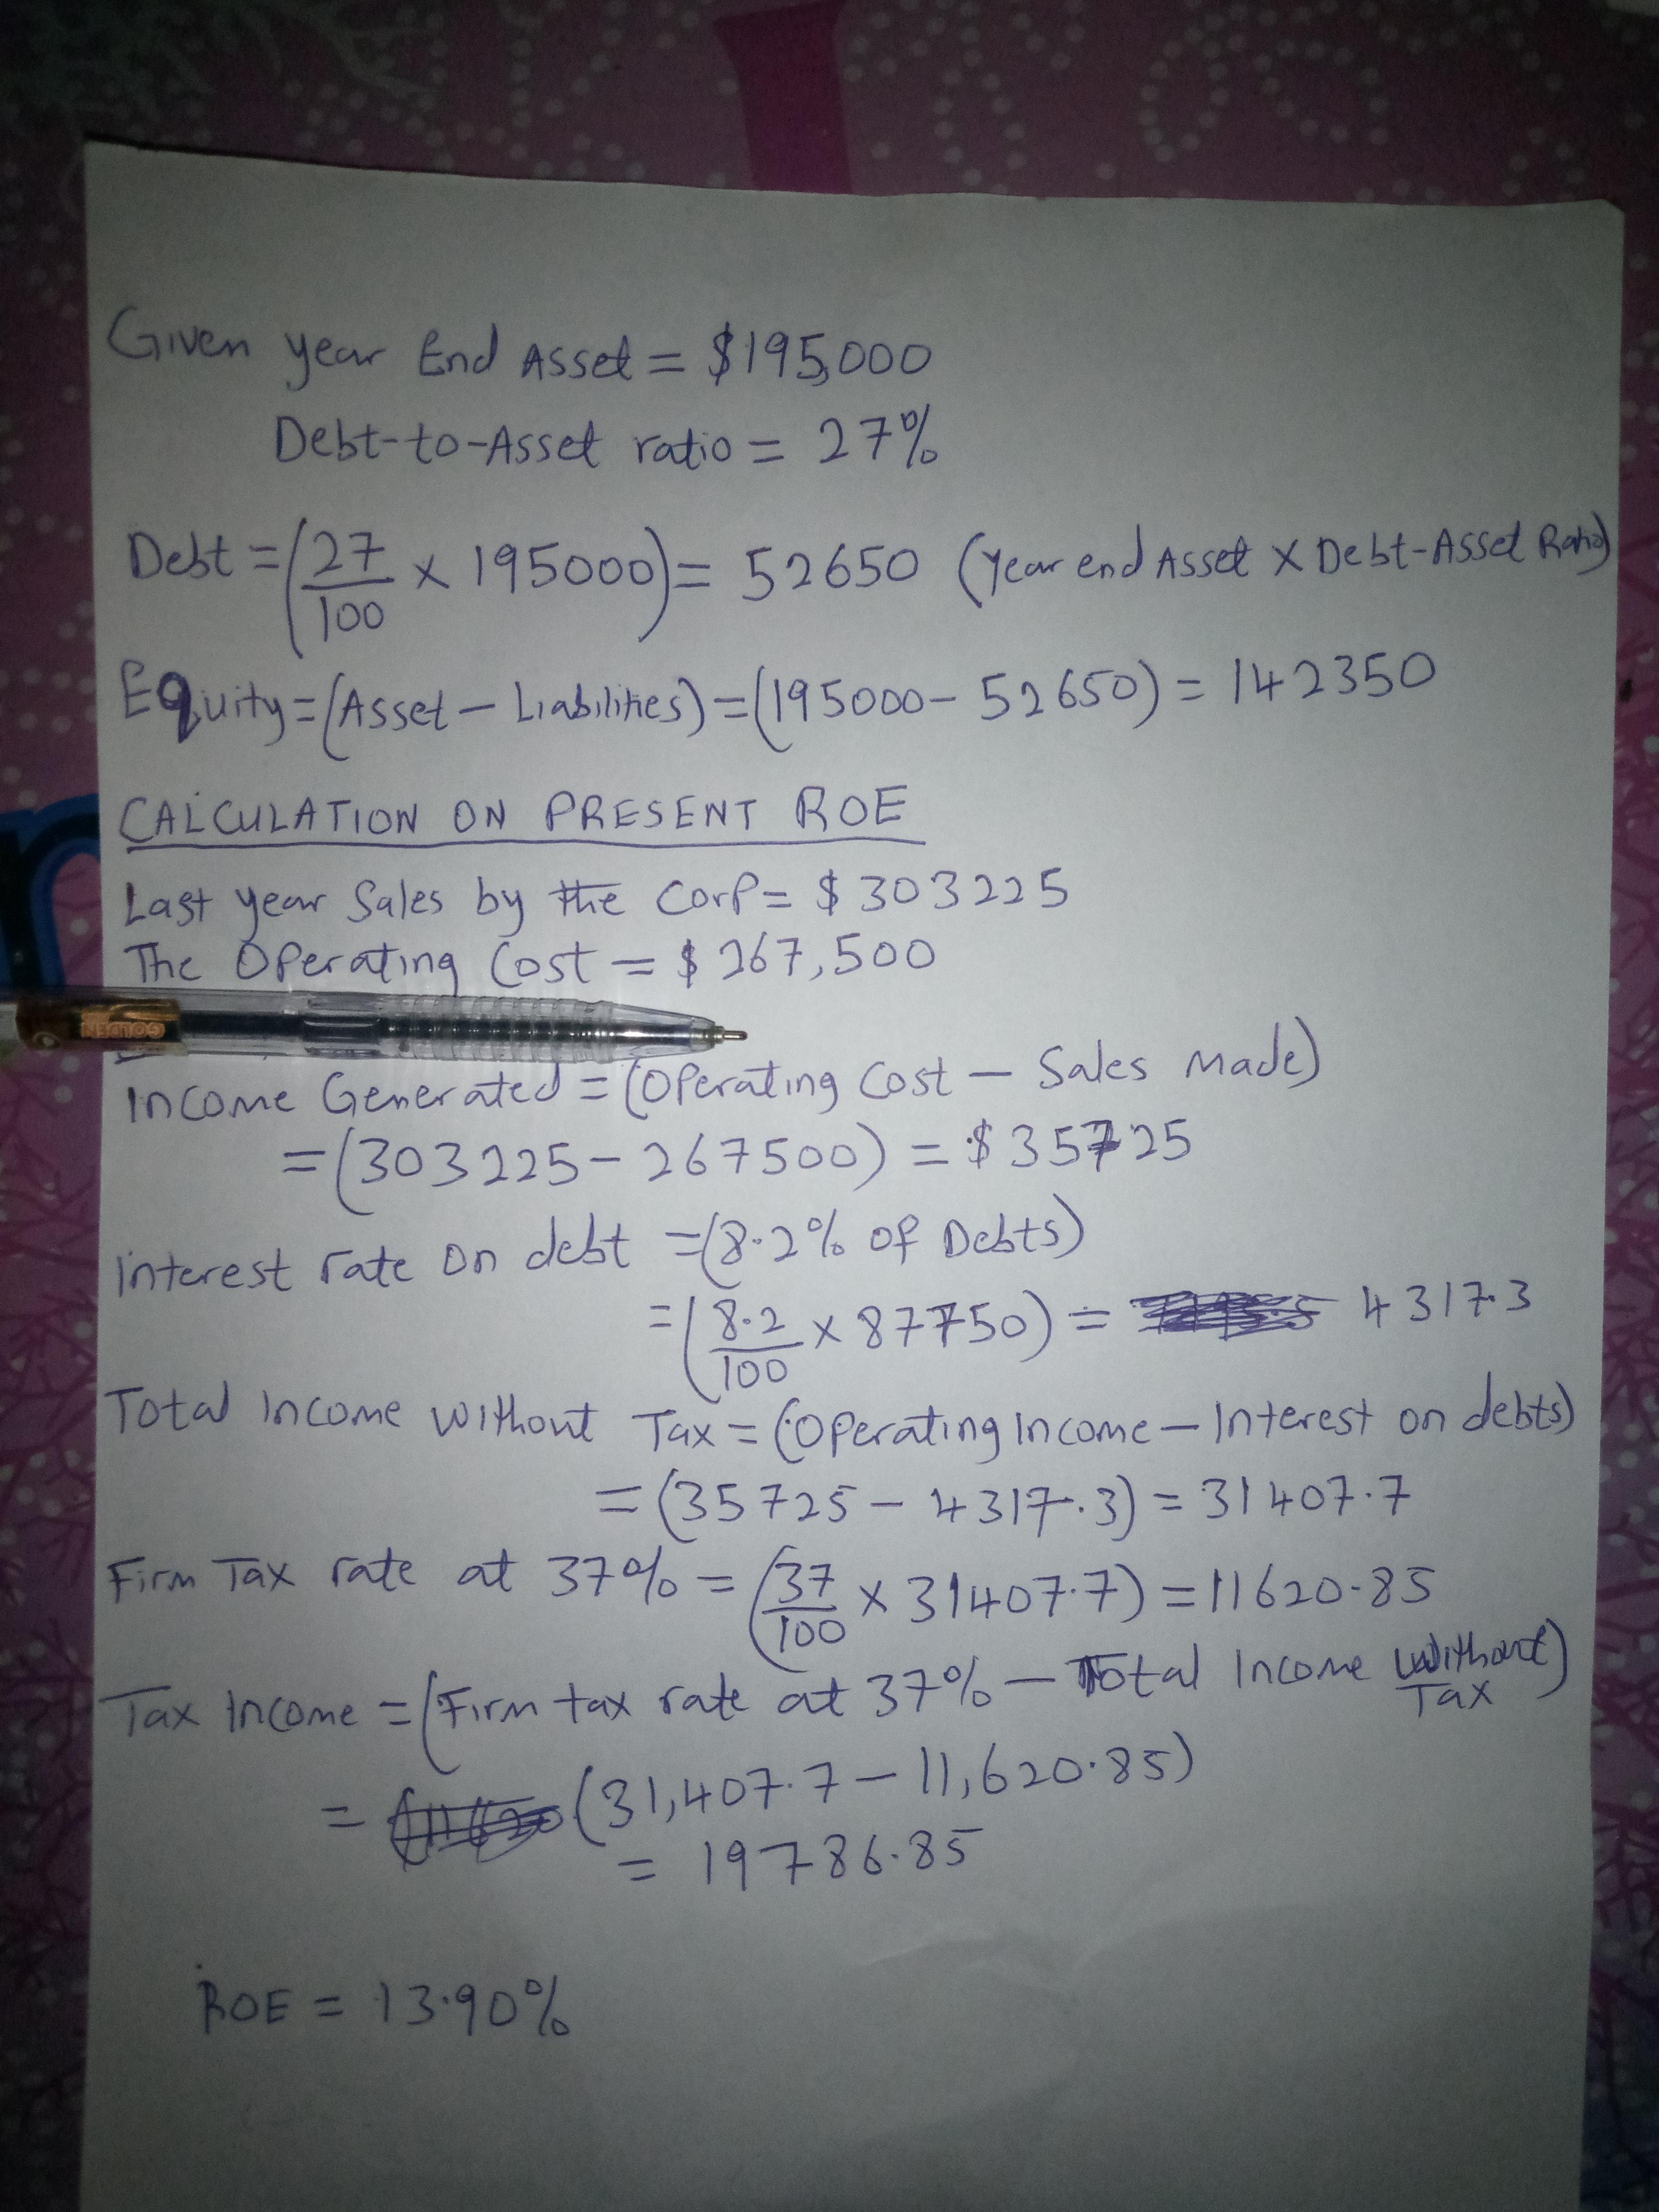 Given year End Asset = $195,000
Debt-to-Asset ratio = 27%
Debt = (27/100 x 195000) = 52650 (year end Asset X Debt-Asset Ratio)
Equity = (Asset - Liabilities) = (195000 - 52650) = 142350
CALCULATION ON PRESENT ROE
Last year Sales by the Corp = $303225
The Operating Cost = $267,500
GOLDEN
Income Generated = (Operating Cost - Sales Made)
= (303225 - 267500) = $35725
Interest rate on debt = (8.2% of Debts)
= (8.2/100 x 87750) = 4317.3
Total Income without Tax = (Operating Income - Interest on debts)
= (35725 - 4317.3) = 31407.7
Firm Tax rate at 37% = (37/100 x 31407.7) = 11620.85
Tax Income = (Firm tax rate at 37% - Total Income Without Tax)
= (31,407.7 - 11,620.85)
= 19786.85
ROE = 13.90%